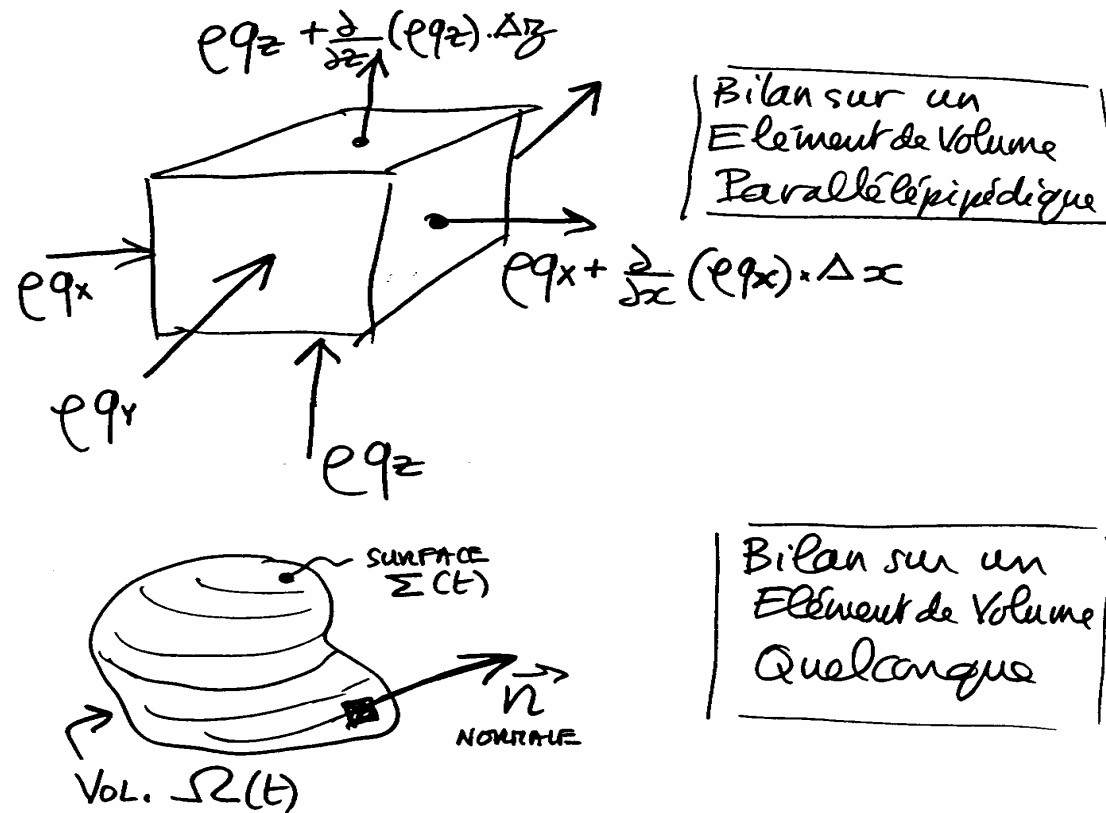 ρq_z + ∂/∂z (ρq_z).Δz
Bilan sur un
Elément de Volume
Parallélépipédique
ρq_x
ρq_x + ∂/∂x (ρq_x).Δx
ρq_Y
ρq_z
SURFACE
Σ(t)
Bilan sur un
Elément de Volume
Quelconque
n⃗
NORMALE
VOL. Ω(t)